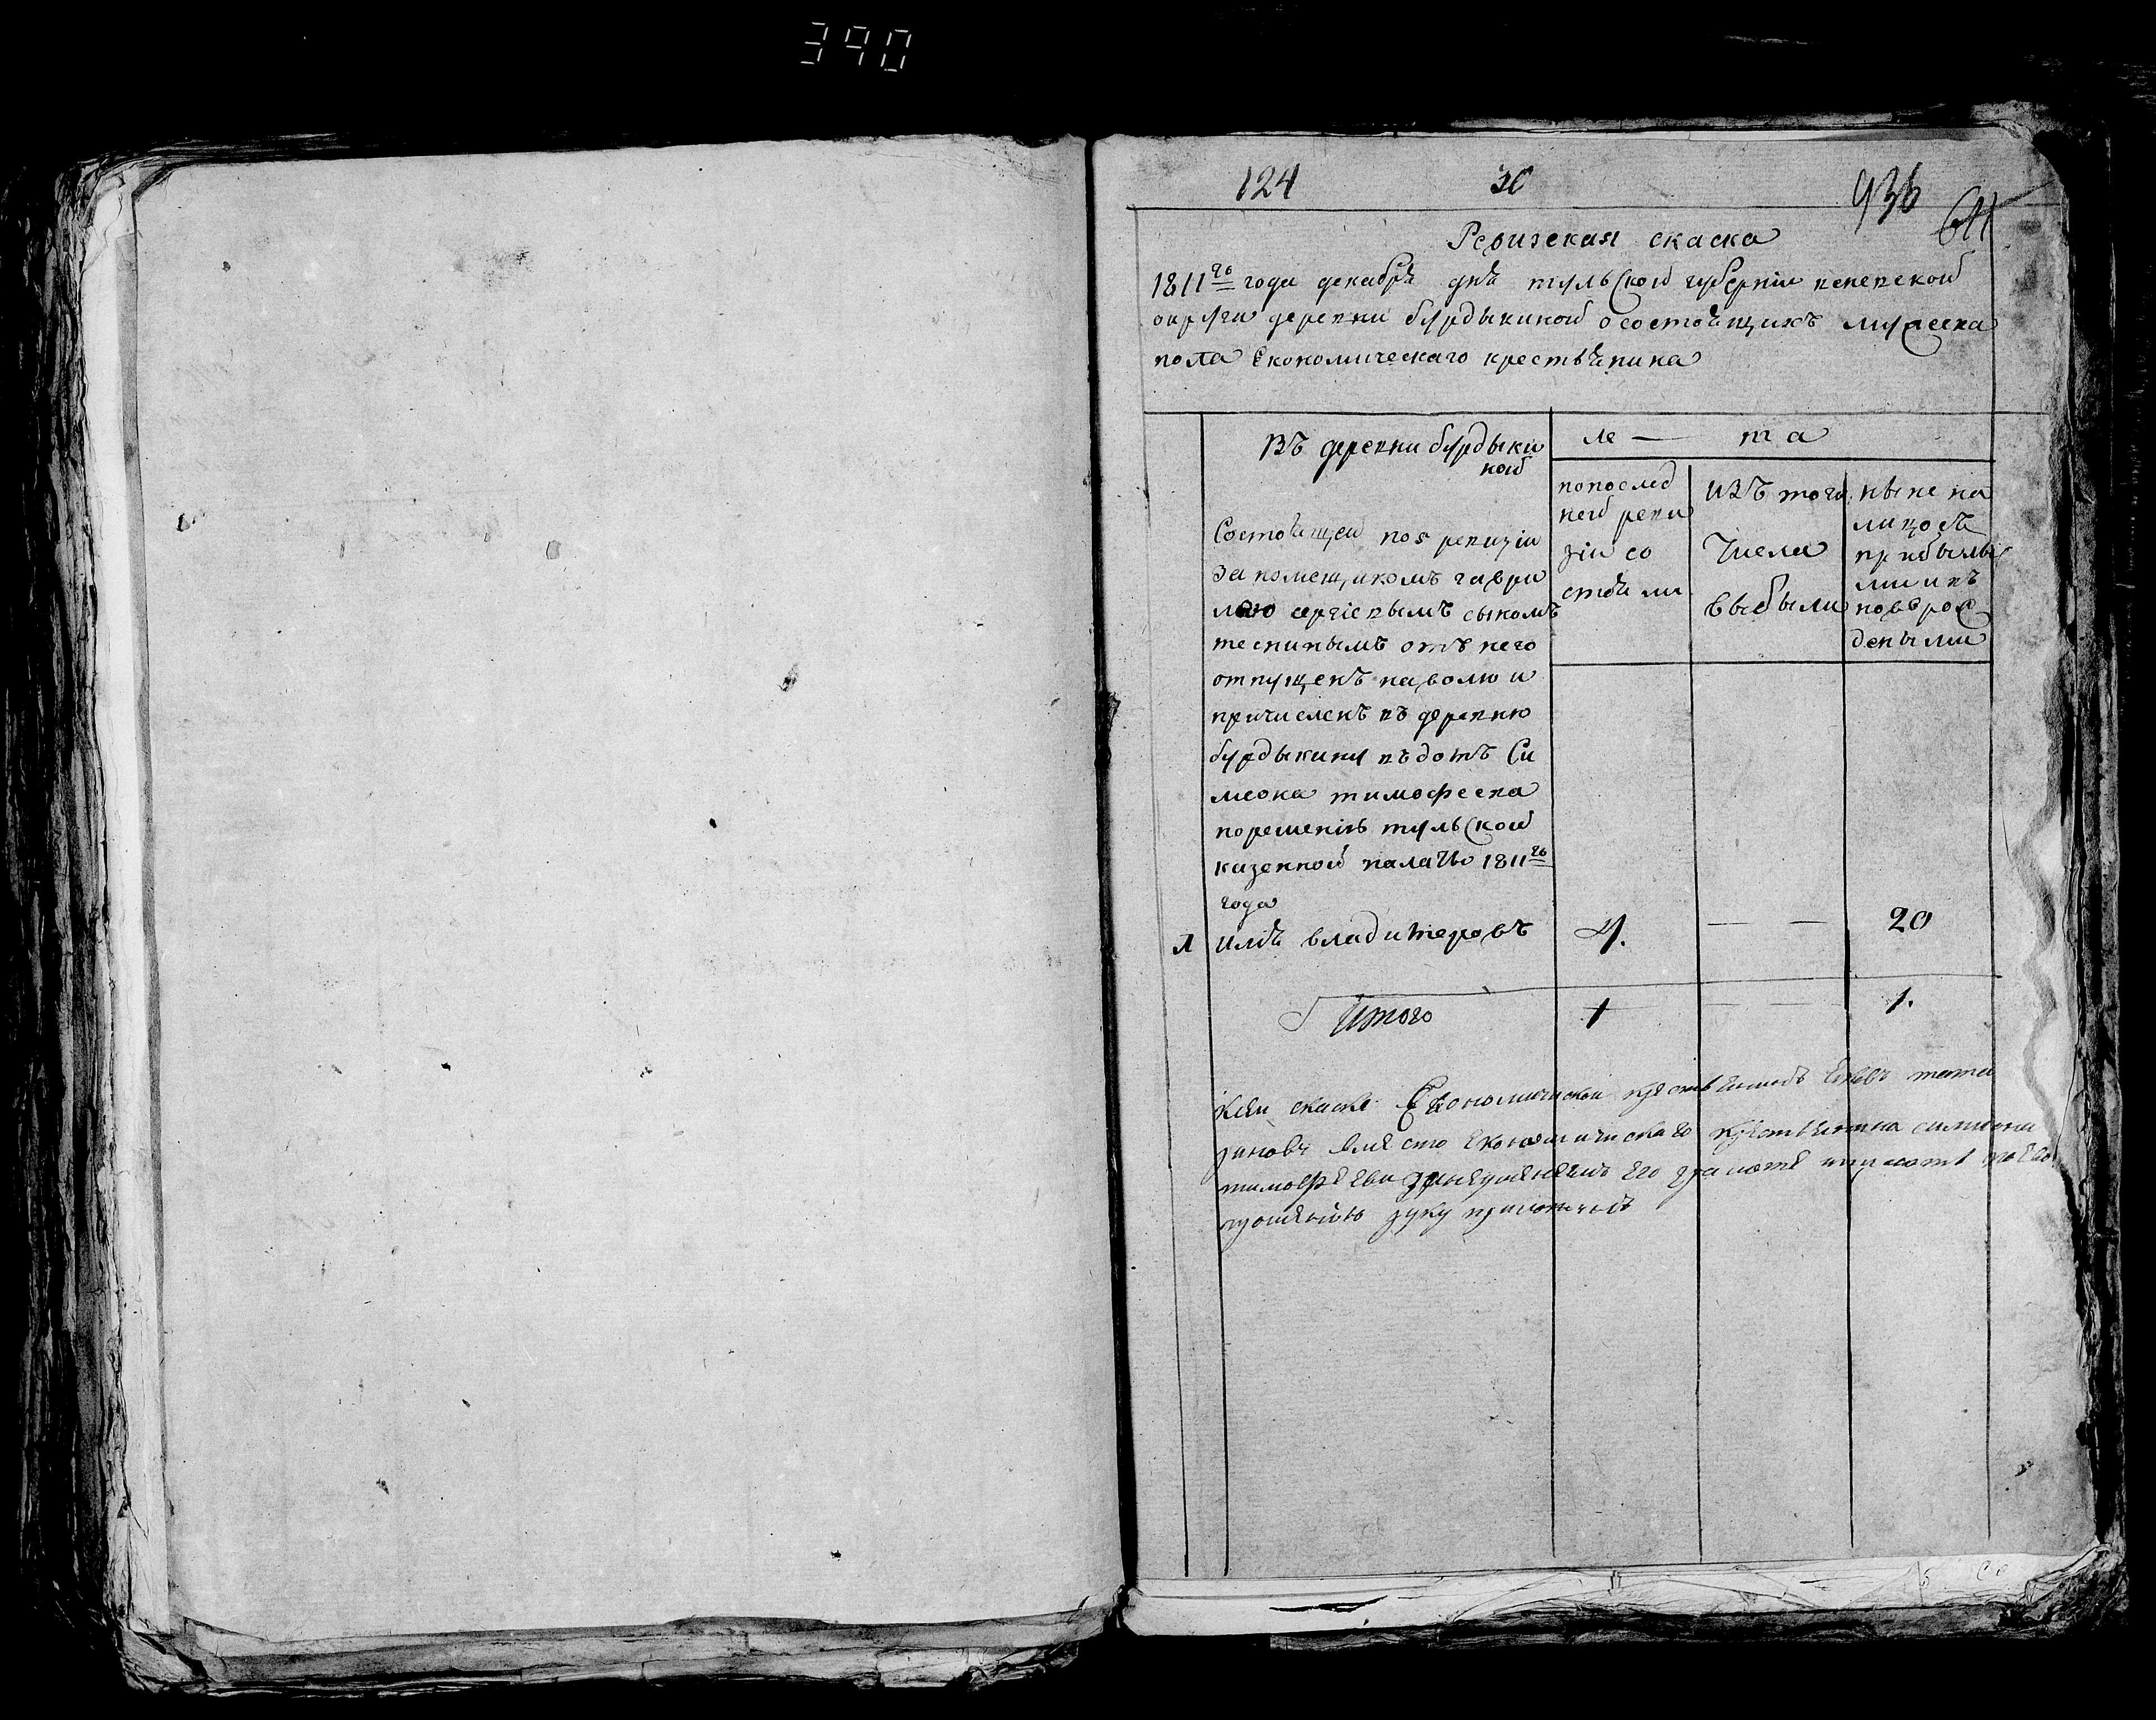 390
124 30 936 611
Ревизская скаска
1811го года декабря дня тульской губернии веневской
округи деревни бурдыкиной о состоящихъ мужеска
пола Економическаго крестьянина
Въ деревни бурдыки
ной
ле — та
по послед
ней реви
зіи со
стояли
изъ того
числа
выбыли
ныне на
лицо съ
прибылы
ми и въ
новь рож
деными
Состоящей по 5 ревизіи
за помещикомъ гаври
лою сергіевымъ сыномъ
отъ него
отпущенъ на волю и
причисленъ въ деревню
бурдыкину въ домъ Си
меона тимофеева
по решенію тульской
казенной палаты 1811го
года
1 илья 4. — — 20
Итого 1 — — 1.
К сей скаске Економической крестьянинъ
вместо економическаго крестьянина симиона
тимофеева за неумениемъ его грамоте и писать по его
прошению руку приложилъ